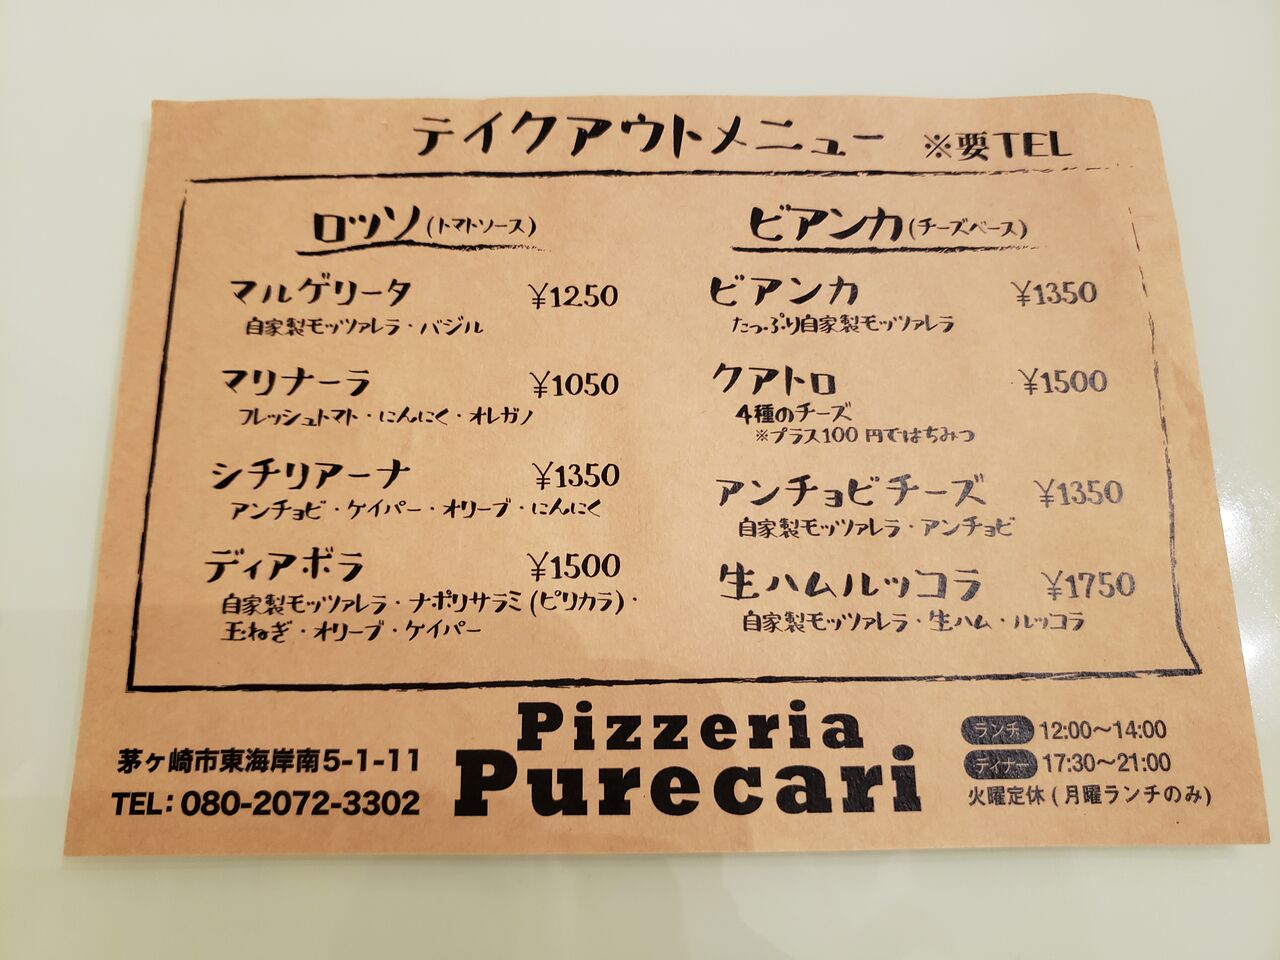 テイクアウトメニュー ※要TEL
ロッソ(トマトソース)
マルゲリータ ¥1250
自家製モッツァレラ・バジル
マリナーラ ¥1050
フレッシュトマト・にんにく・オレガノ
シチリアーナ ¥1350
アンチョビ・ケイパー・オリーブ・にんにく
ディアボラ ¥1500
自家製モッツァレラ・ナポリサラミ(ピリカラ)・
玉ねぎ・オリーブ・ケイパー
ビアンカ(チーズベース)
ビアンカ ¥1350
たっぷり自家製モッツァレラ
クアトロ ¥1500
4種のチーズ
※プラス100円ではちみつ
アンチョビチーズ ¥1350
自家製モッツァレラ・アンチョビ
生ハムルッコラ ¥1750
自家製モッツァレラ・生ハム・ルッコラ
茅ヶ崎市東海岸南5-1-11
TEL:080-2072-3302
Pizzeria
Purecari
ランチ 12:00〜14:00
ディナー 17:30〜21:00
火曜定休(月曜ランチのみ)